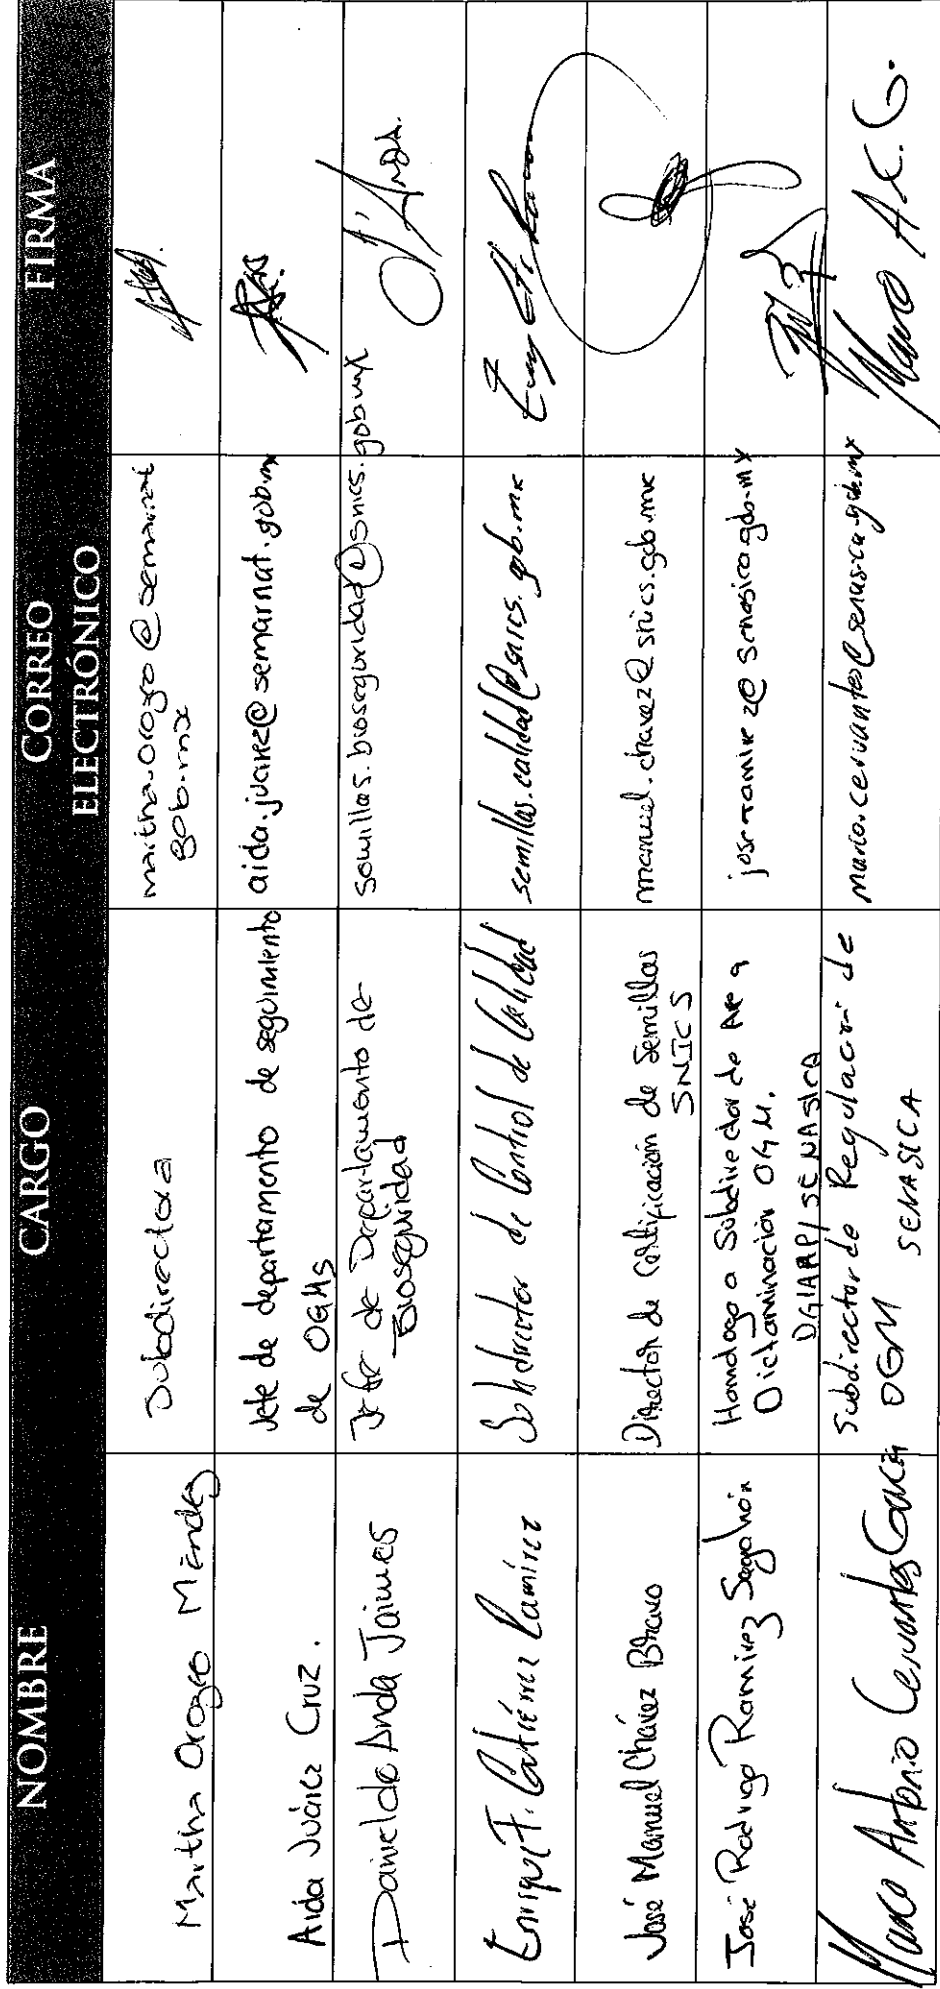 NOMBRE
CARGO
CORREO
ELECTRÓNICO
FIRMA
Martha Orozco Méndez
Subdirectora
martha.orozco@semarnat
gob.mx
Aida Juárez Cruz.
Jefe de departamento de seguimiento
de OGMs
aida.juarez@semarnat.gob.mx
Daniel de Anda Jaimes
Jefe de Departamento de
Bioseguridad
semillas.bioseguridad@snics.gob.mx
Enrique F. Gutiérrez Ramírez
Subdirector de Control de Calidad
semillas.calidad@snics.gob.mx
José Manuel Chávez Bravo
Director de Certificación de Semillas
SNICS
manuel.chavez@snics.gob.mx
José Rodrigo Ramírez
Homologo a Subdirector de
Dictaminación OGM.
DGIAAP/SENASICA
jose.ramirez@senasica.gob.mx
Marco Antonio Cervantes García
Subdirector de Regulación de
OGM SENASICA
marco.cervantes@senasica.gob.mx
Marco A. C. G.